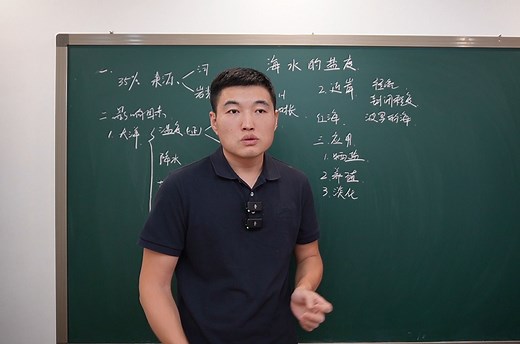 海水的盐度
一.
35‰ 来源 河
岩
二.影响因素
1.大洋 温度
降水
2.近岸 径流
封闭程度
红海 波罗的海
三.应用
1.晒盐
2.养殖
3.淡化